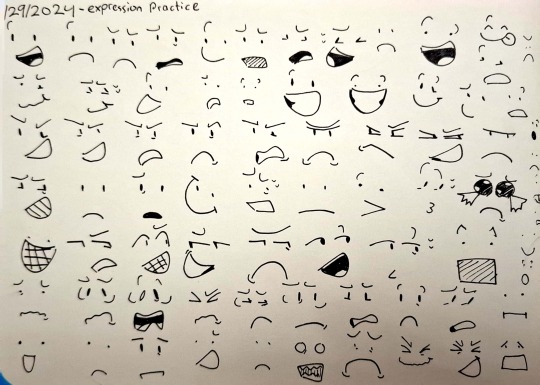 1/29/2024 - expression Practice